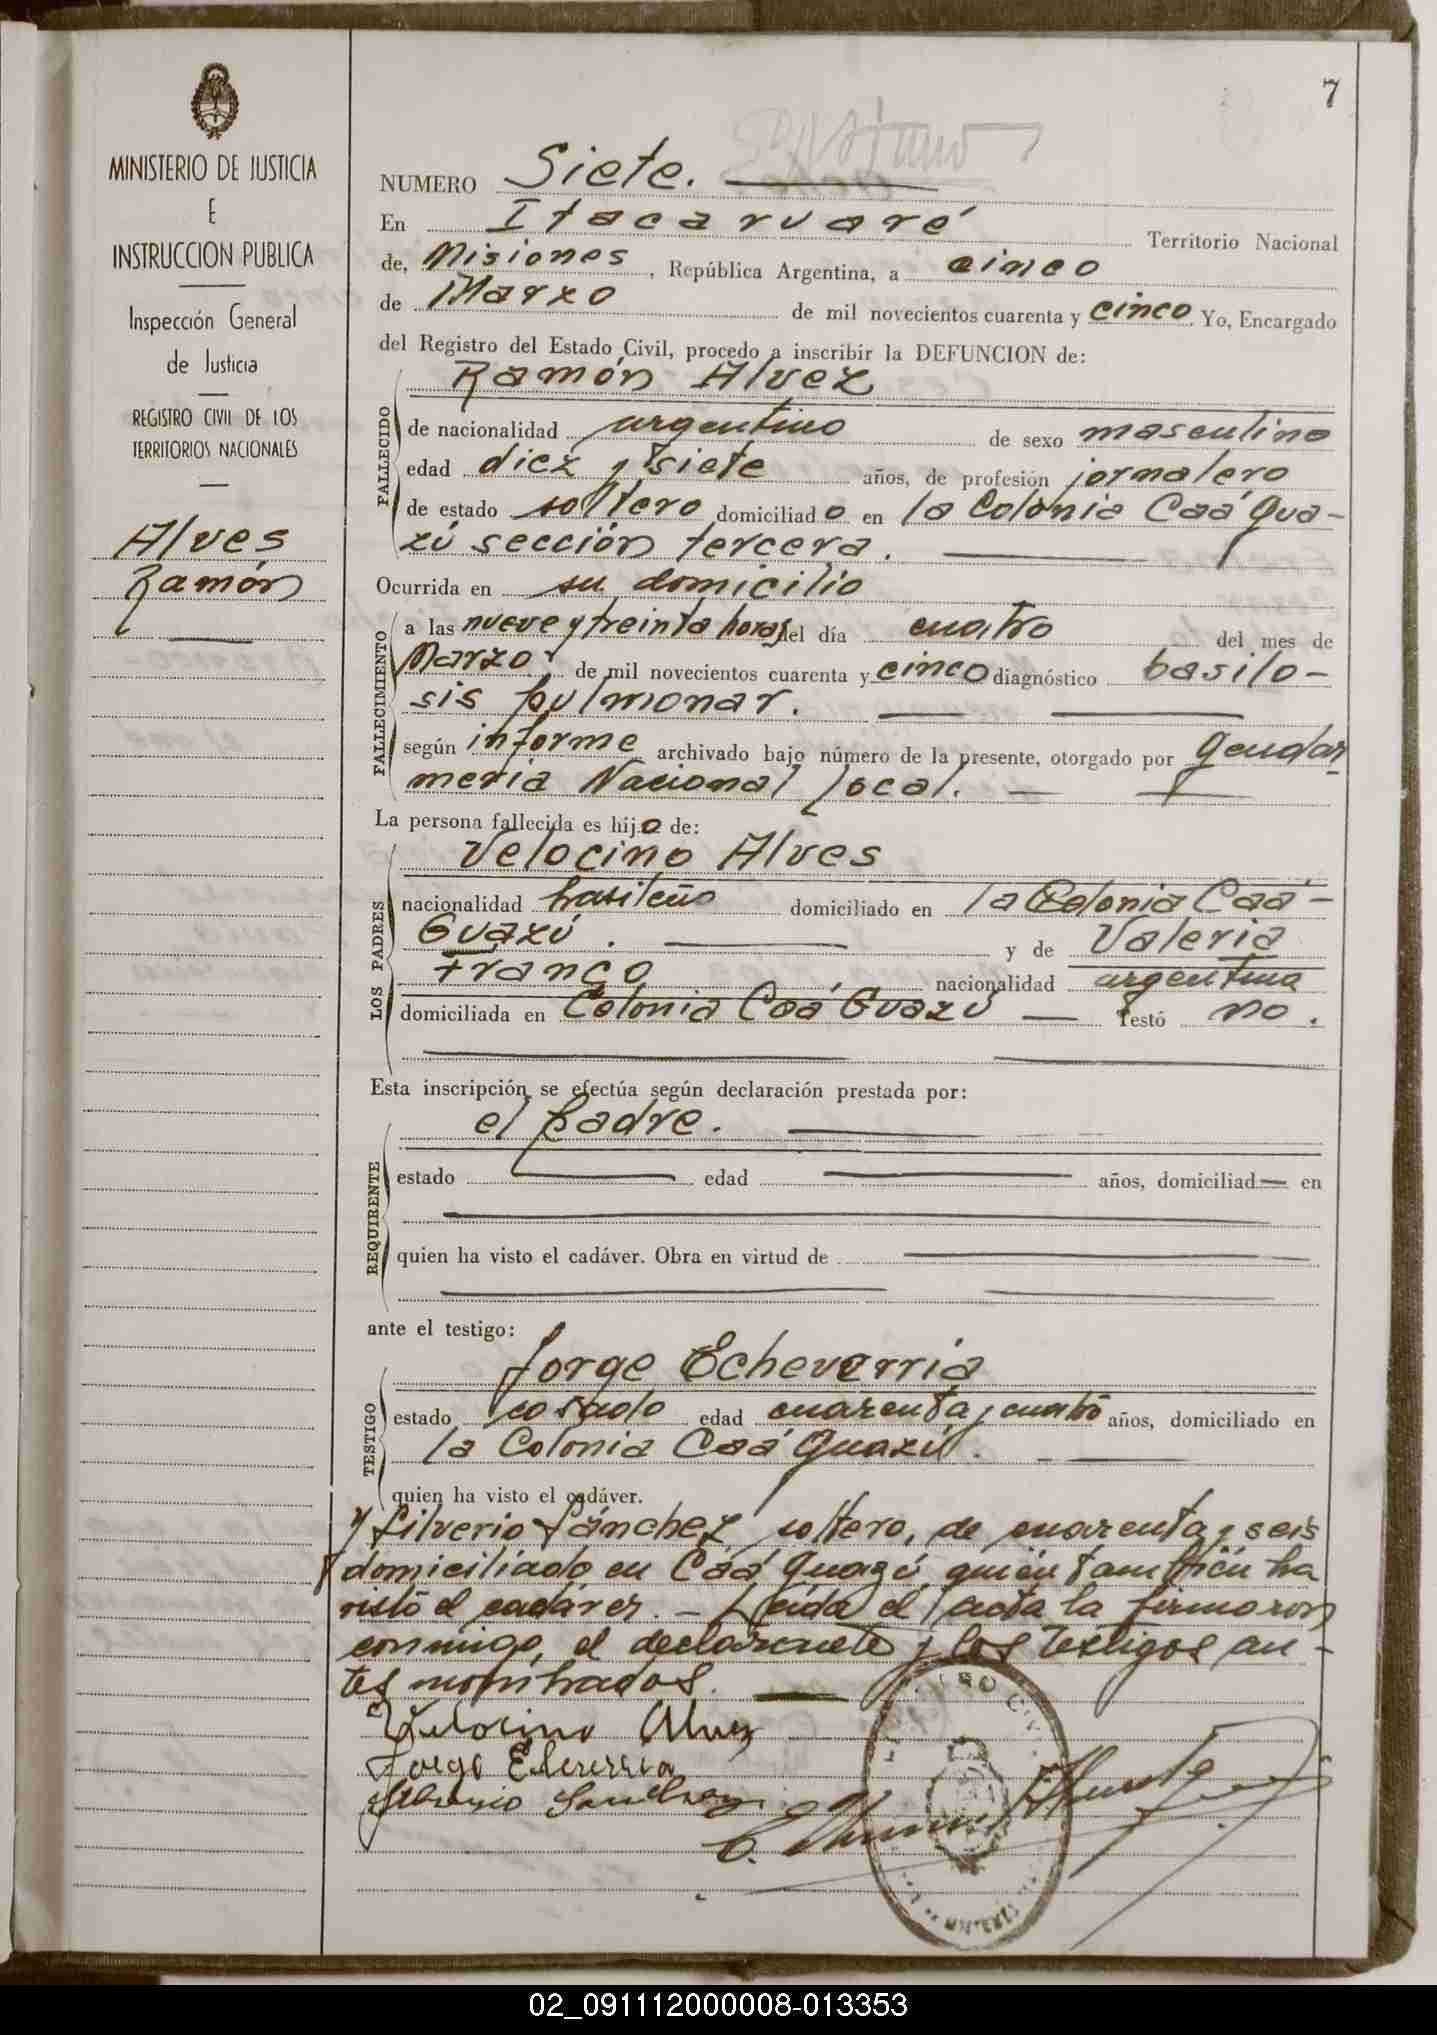 7
MINISTERIO DE JUSTICIA
E
INSTRUCCION PUBLICA
Inspección General
de Justicia
REGISTRO CIVIL DE LOS
TERRITORIOS NACIONALES
Alves
Ramón
NUMERO Siete.
En Itacaruaré Territorio Nacional
de, Misiones, República Argentina, a cinco
de Marzo de mil novecientos cuarenta y cinco Yo, Encargado
del Registro del Estado Civil, procedo a inscribir la DEFUNCION de:
Ramón Alvez
FALLECIDO
de nacionalidad argentino de sexo masculino
edad diez y siete años, de profesión jornalero
de estado soltero domiciliado en la Colonia Caá Gua-
zú sección tercera.
Ocurrida en su domicilio
FALLECIMIENTO
a las nueve y treinta horas del día cuatro del mes de
Marzo de mil novecientos cuarenta y cinco diagnóstico basilo-
sis pulmonar.
según informe archivado bajo número de la presente, otorgado por Gendar
meria Nacional local.
La persona fallecida es hijo de:
Velocino Alves
LOS PADRES
nacionalidad brasileño domiciliado en la Colonia Caá-
Guazú. y de Valeria
Franco nacionalidad argentina
domiciliada en Colonia Caá Guazú Testó no.
Esta inscripción se efectúa según declaración prestada por:
el padre.
REQUIRENTE
estado edad años, domiciliad en
quien ha visto el cadáver. Obra en virtud de
ante el testigo:
Jorge Echeverria
TESTIGO
estado casado edad cuarenta y cuatro años, domiciliado en
la Colonia Caá Guazú.
quien ha visto el cadáver.
y Silverio Sánchez, soltero, de cuarenta y seis
domiciliado en Caá Guazú, quien también ha
visto el cadáver. - Leída el acta la firmaron
conmigo, el declarante y los testigos an-
tes nombrados.
Velocino Alvez
Jorge Echeverria
Silverio Sanchez
02_091112000008-013353